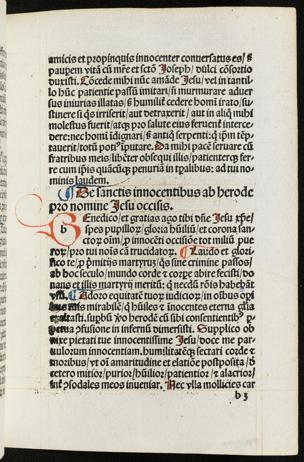 amicis et propinquis innocenter conversatus es/ &
pauperem vitā cū mr̄e et sctō Joseph/ dulci cōsortio
duxisti. Cōcede mihi nūc amāde Jesu/ vel in tantil-
lo hūc patientie passū imitari/ ñ murmurare aduer
sus iniurias illatas/ & humilit̄ cedere homī irato/ su-
stinere si q̄s irriserit/ aut detraxerit/ aut in aliq̄ mihi
molestus fuerit/ atq̄ pro salute eius feruent̄ interce-
dere: nec homī īdignari/ & antiq̄ serpenti: q̄ ipm̄ tēp-
tauerit/ totū poti9 īputare. Da mihi pacē seruare cū
fratribus meis/ libēter obsequi illis/ patienterq̄ fer-
re cum ip̄is quācūq̄ penuriā in tpalibus: ad tui no-
minis laudem.
De sanctis innocentibus ab herode
pro nomine Jesu occisis.
Benedico et gratias ago tibi dn̄e Jesu xp̄e/
spes pupillor̄/ gloria hūiliū/ et corona san-
ctor̄ oīm/ p̄ innocēti occisiōe tot miliū pue
ror̄/ pro tui noīs cā trucidator̄. Laudo et glori-
fico te/ p̄ p̄miis martyrii/ q̄s sine crimine passos/
ab hoc seculo/ mundo corde & corpe abire fecisti/ do
nans et illis martyrii meritū: q̄ necdū rōis habebāt
vsū. Adoro equitatē tuor̄ iudicior̄/ in oīibus opi
bus mirabilē/ q̄ hūiles & īnocentes eterna glia
exaltasti. supbū v̄o herodē cū sibi consentientib9 p
petua ɔfusione in infernū dimersisti. Supplico ob
nixe pietati tue innocentissime Jesu/ doce me par-
uulorum innocentiam. humilitatēq̄ sectari corde &
moribus/ vt oī amaritudine et elatiōe postposita/ ñ
cetero mitior/ purior/ hūilior/ patientior/ & alacrior/
int̄ ɔsodales meos inueniar. Nec vlla mollicies car
b 3